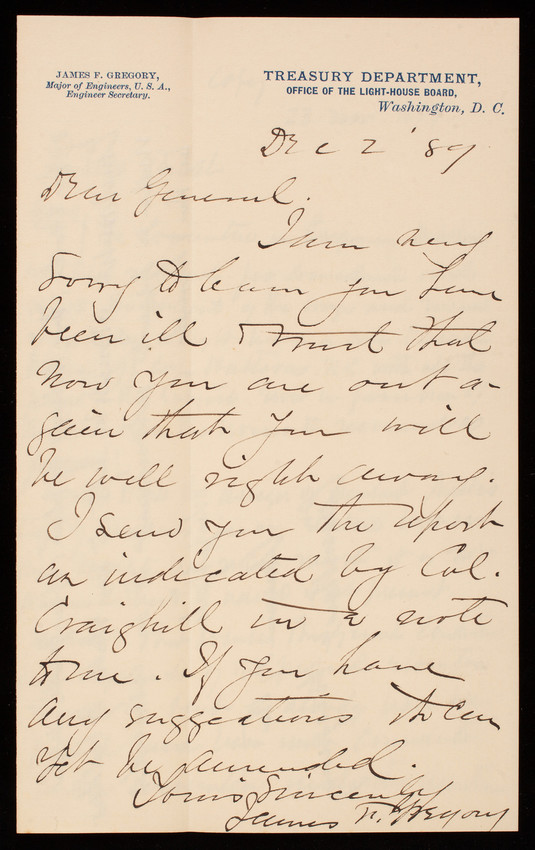 JAMES F. GREGORY,
Major of Engineers, U. S. A.,
Engineer Secretary.
TREASURY DEPARTMENT,
OFFICE OF THE LIGHT-HOUSE BOARD,
Washington, D. C.
Dec 2 '89
Dear General.
I am very
sorry to learn you have
been ill & trust that
now you are out a-
gain that you will
be well right away.
I send you the report
as indicated by Col.
Craighill in a note
to me. If you have
any suggestions it can
yet be amended.
Yours Sincerely
James F. Gregory